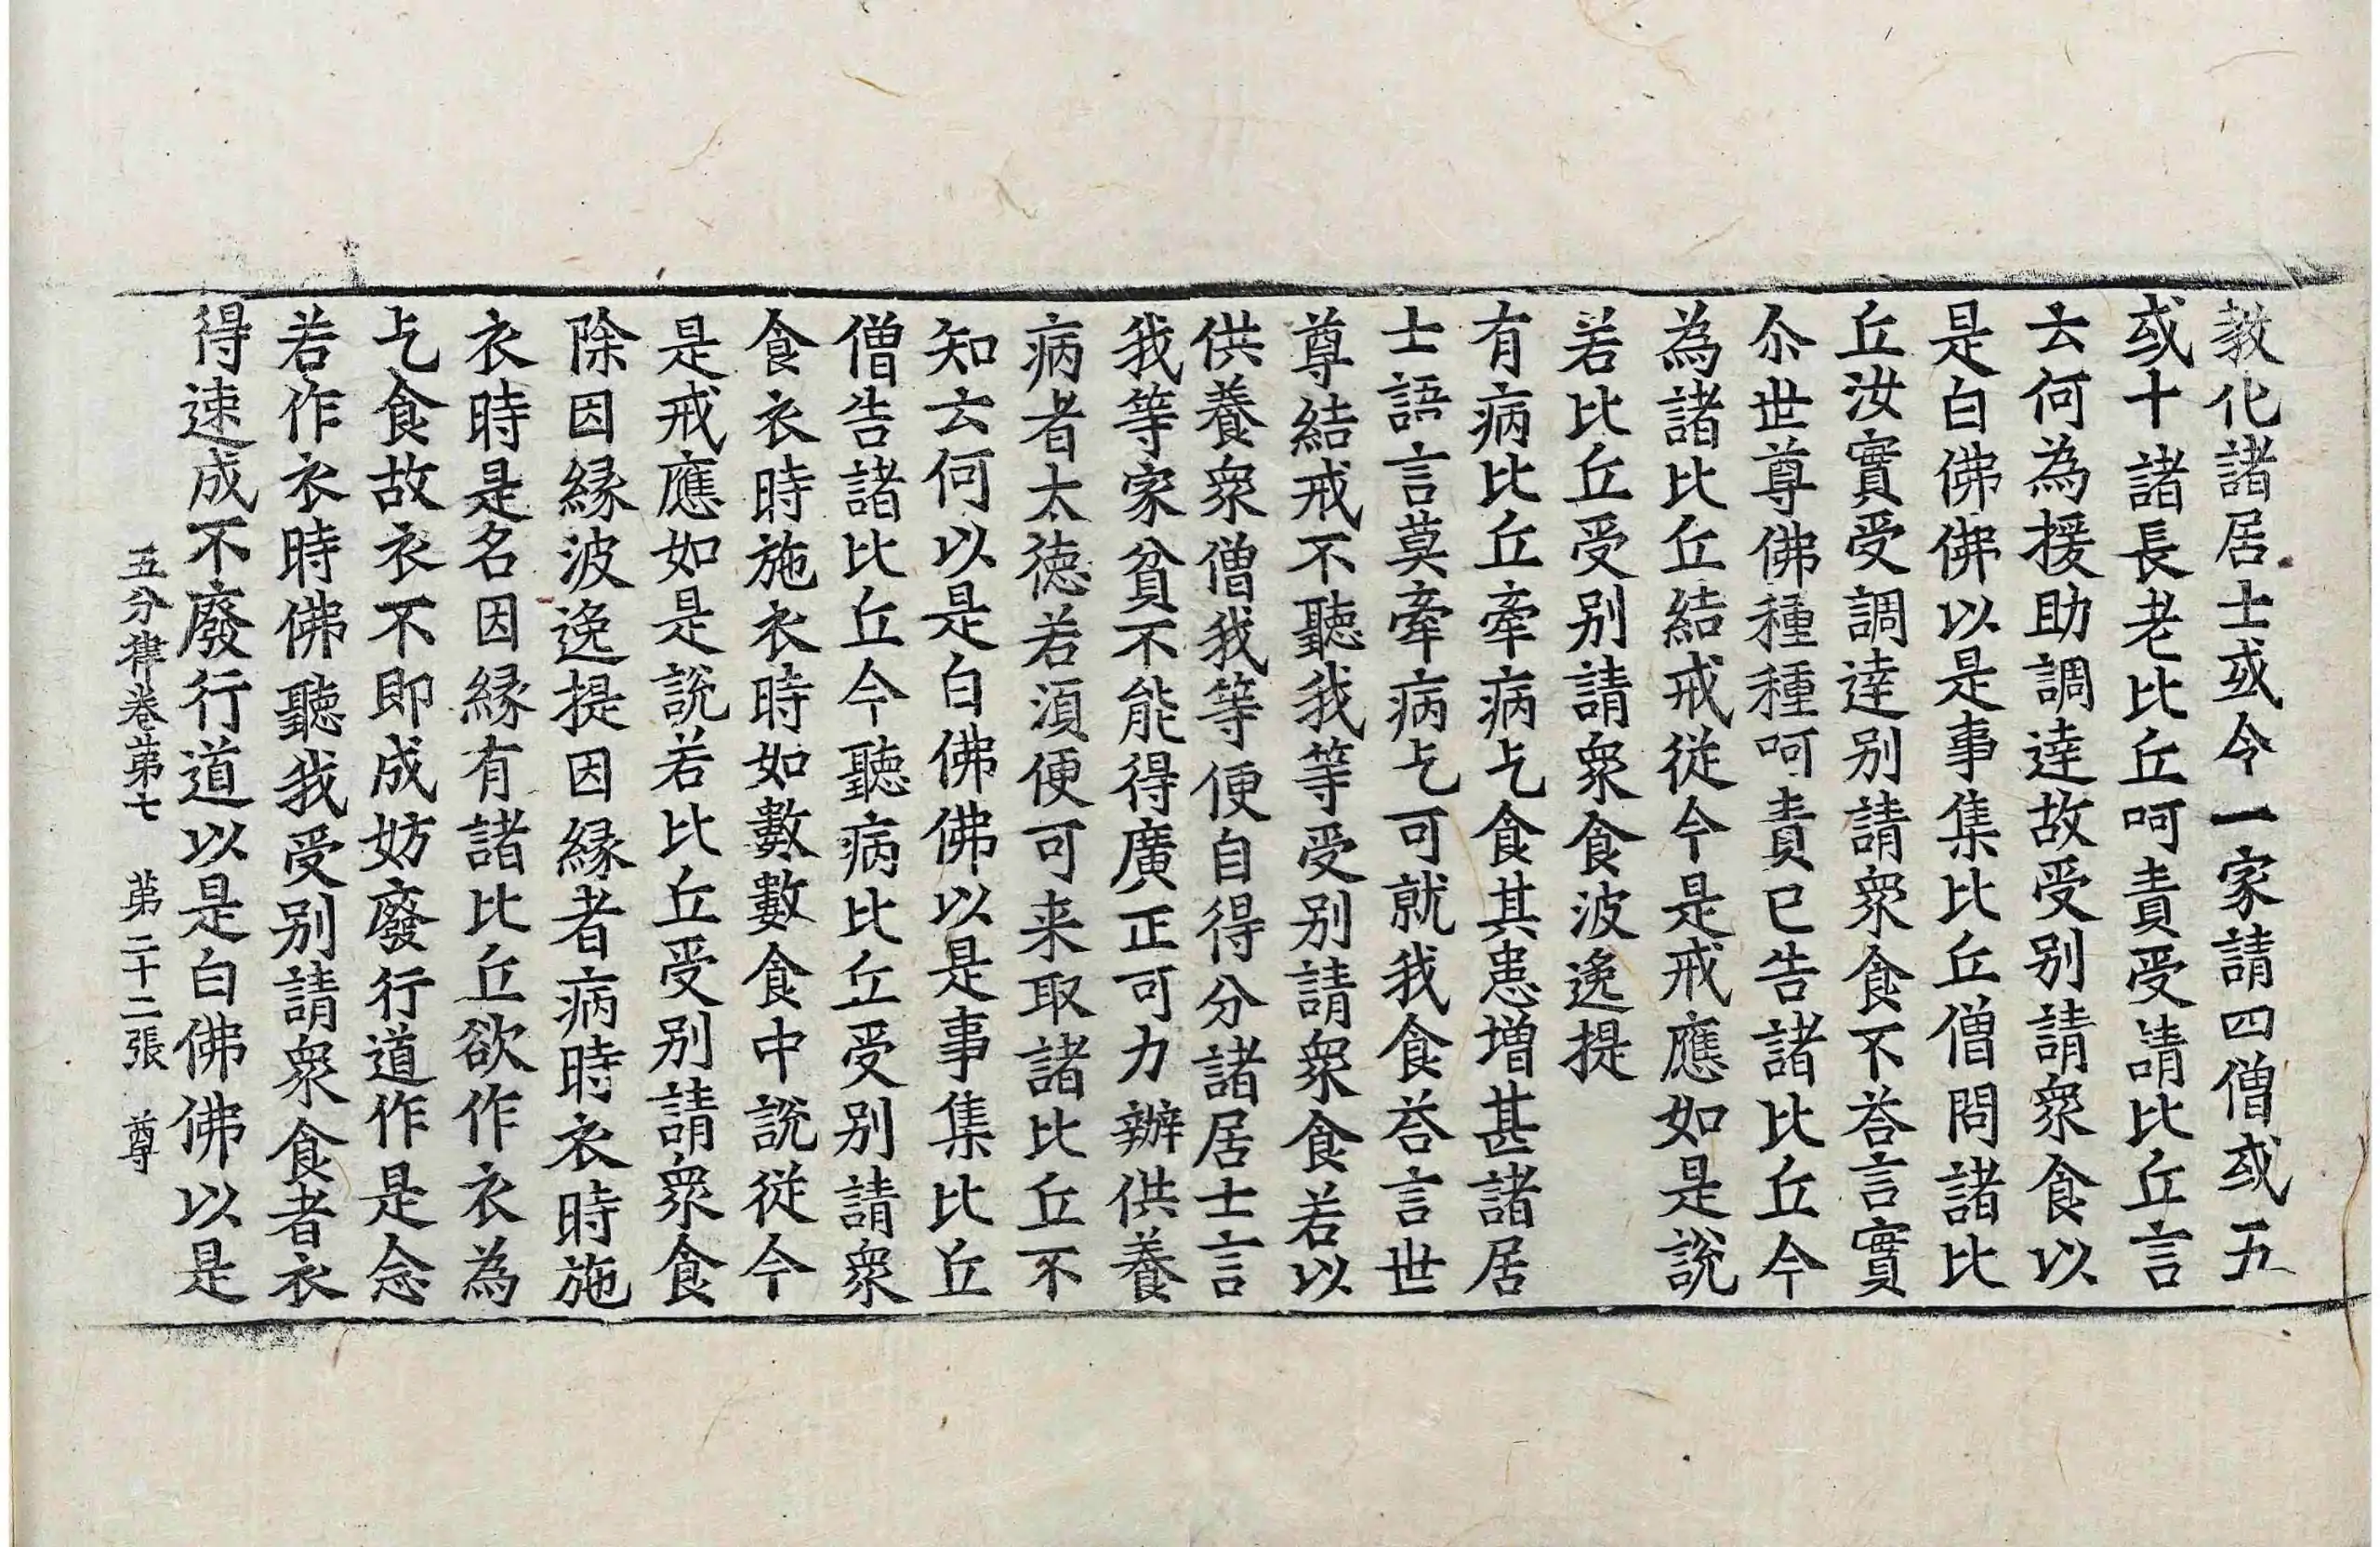 教化諸居士或令一家請四僧或五
或十諸長老比丘呵責受請比丘言
云何為援助調達故受别請衆食以
是白佛佛以是事集比丘僧問諸比
丘汝實受調達别請衆食不荅言實
尒世尊佛種種呵責已告諸比丘今
為諸比丘結戒從今是戒應如是說
若比丘受别請衆食波逸提
有病比丘牽病乞食其患增甚諸居
士語言莫牽病乞可就我食荅言世
尊結戒不聽我等受别請衆食若以
供養衆僧我等便自得分諸居士言
我等家貧不能得廣正可力辦供養
病者太德若湏便可来取諸比丘不
知云何以是白佛佛以是事集比丘
僧告諸比丘今聽病比丘受别請衆
食衣時施衣時如數數食中說從今
是戒應如是說若比丘受别請衆食
除因縁波逸提因縁者病時衣時施
衣時是名因縁有諸比丘欲作衣為
乞食故衣不即成妨廢行道作是念
若作衣時佛聽我受别請衆食者衣
得速成不廢行道以是白佛佛以是
五分律卷第七 第二十二張 尊